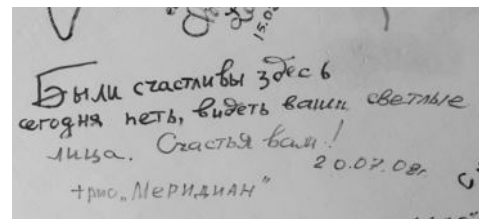 15.0
Были счастливы здесь
сегодня петь, видеть ваши светлые
лица. Счастья вам!
20.07.08г.
трио „Меридиан"